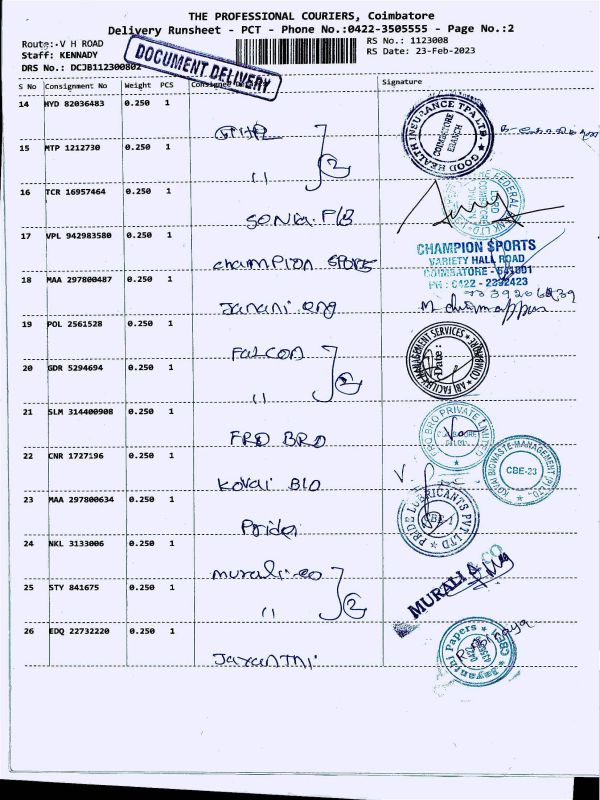 THE PROFESSIONAL COURIERS, Coimbatore
Delivery Runsheet - PCT - Phone No.:0422-3505555 - Page No.:2
Route:-V H ROAD
Staff: KENNADY
DRS No.: DCJB112300802
DOCUMENT DELIVERY
RS No.: 1123008
RS Date: 23-Feb-2023
S No Consignment No Weight PCS Consignee Signature
14 HYD 82036483 0.250 1
GOOD HEALTH INSURANCE TPA LTD COIMBATORE BRANCH
15 MTP 1212730 0.250 1
" 2
16 TCR 16957464 0.250 1
FEDERAL
17 VPL 942983580 0.250 1
Champion Sports
CHAMPION SPORTS
VARIETY HALL ROAD
COIMBATORE - 641001
PH : 0422 - 2392423
18 MAA 297800487 0.250 1
Janani eng
19 POL 2561528 0.250 1
Falcon
ABI FACILITY MANAGEMENT SERVICES
Date :
20 GDR 5294694 0.250 1
" 2
21 SLM 314400908 0.250 1
FRO BRO
FRO BRO PRIVATE LIMITED
22 CNR 1727196 0.250 1
Kovai Bio
KOVAI BIOWASTE MANAGEMENT (P) LTD
CBE-23
23 MAA 297800634 0.250 1
Pride
PRIDE LUBRICANTS PVT LTD
24 NKL 3133006 0.250 1
murali-co
MURALI & CO
25 STY 841675 0.250 1
" 2
26 EDQ 22732220 0.250 1
Jayanthi
Jayanthi Papers